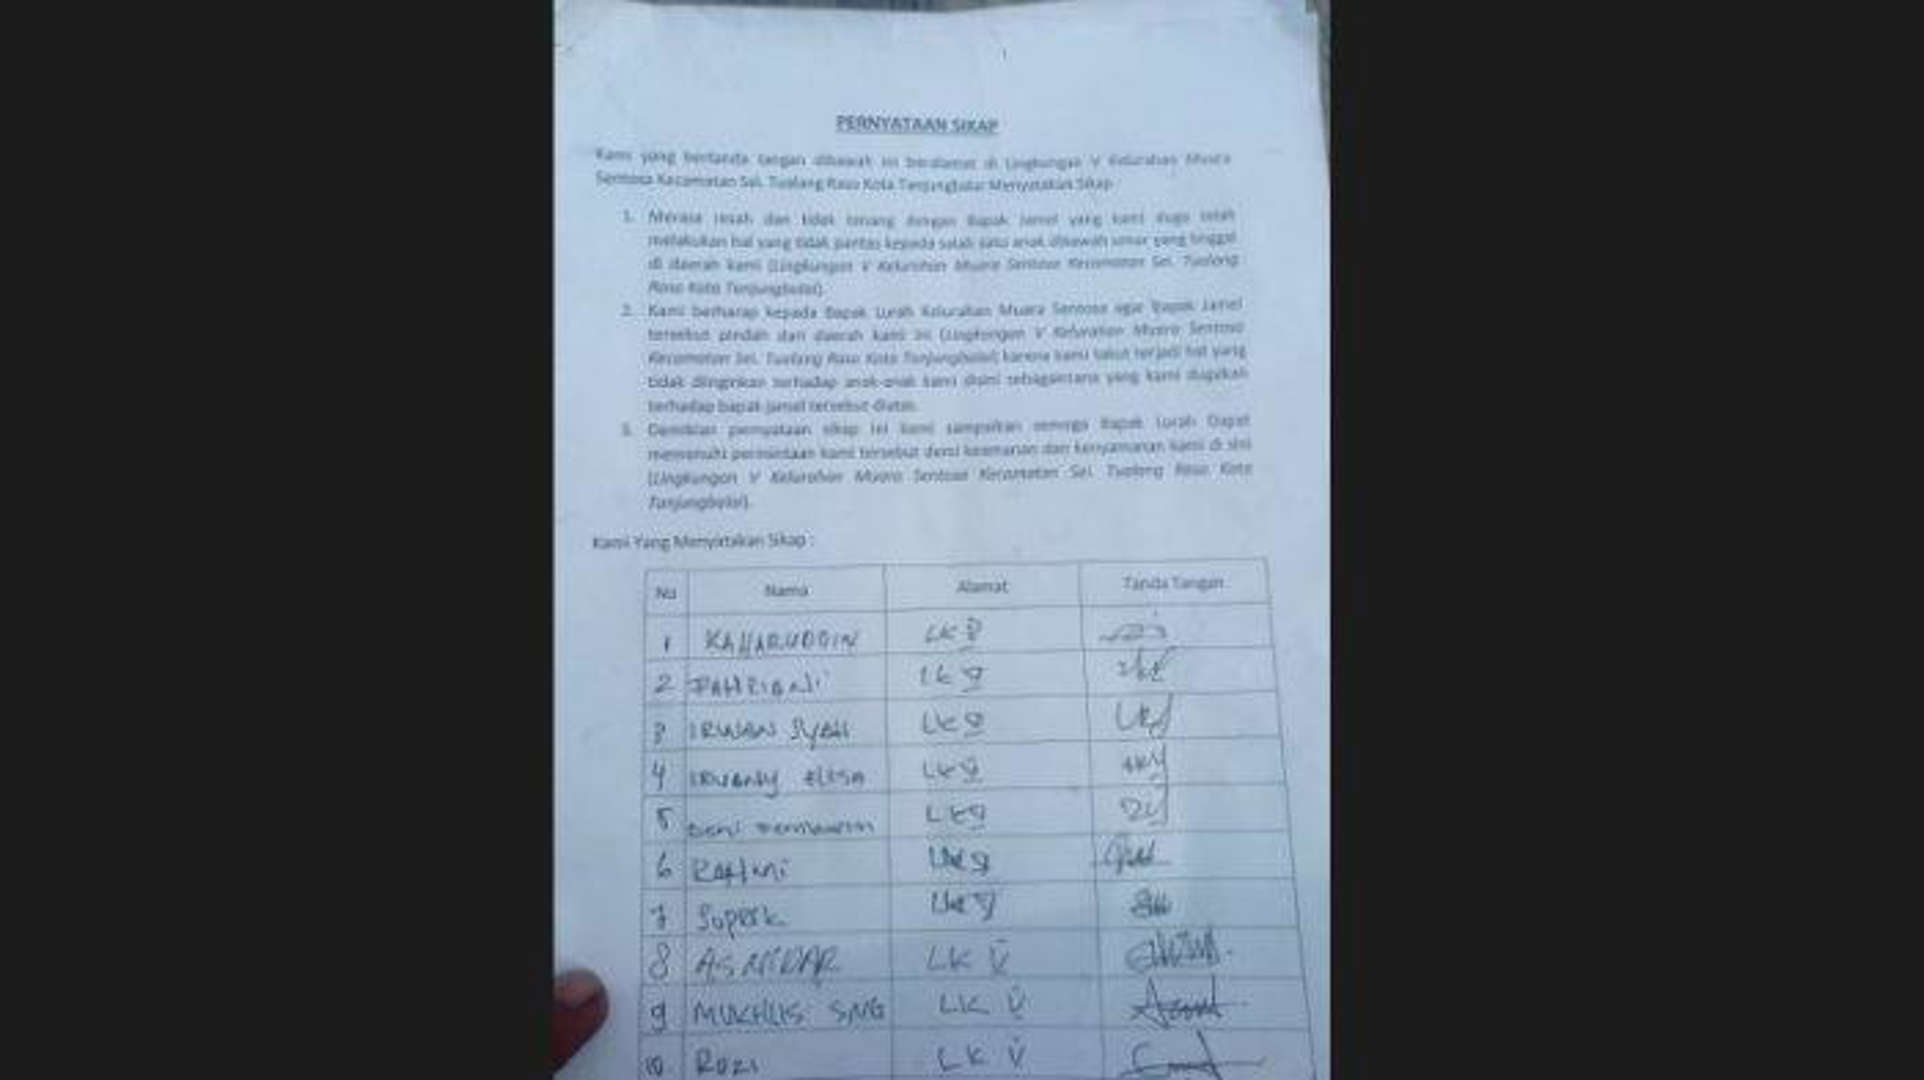 PERNYATAAN SIKAP
Kami yang bertanda tangan dibawah ini beralamat di Lingkungan V Kelurahan Muara
Sentosa Kecamatan Sei. Tualang Raso Kota Tanjungbalai Menyatakan Sikap
1. Merasa resah dan tidak tenang dengan Bapak Jamel yang kami duga telah
melakukan hal yang tidak pantas kepada salah satu anak dibawah umur yang tinggal
di daerah kami (Lingkungan V Kelurahan Muara Sentosa Kecamatan Sei. Tualang
Raso Kota Tanjungbalai).
2. Kami berharap kepada Bapak Lurah Kelurahan Muara Sentosa agar Bapak Jamel
tersebut pindah dari daerah kami ini (Lingkungan V Kelurahan Muara Sentosa
Kecamatan Sei. Tualang Raso Kota Tanjungbalai) karena kami takut terjadi hal yang
tidak diinginkan terhadap anak-anak kami disini sebagaimana yang kami dugakan
terhadap bapak Jamel tersebut diatas.
3. Demikian pernyataan sikap ini kami sampaikan semoga Bapak Lurah Dapat
memenuhi permintaan kami tersebut demi keamanan dan kenyamanan kami di sini
(Lingkungan V Kelurahan Muara Sentosa Kecamatan Sei. Tualang Raso Kota
Tanjungbalai).
Kami Yang Menyatakan Sikap :
No Nama Alamat Tanda Tangan
1 KAHARUDDIN LK V
2 LK V
3 IRWAN SYAH LK V
4 LK V
5 LK V
6 LK V
7 LK V
8 ASNIDAR LK V
9 MUKHLIS SNG LK V
10 ROZI LK V